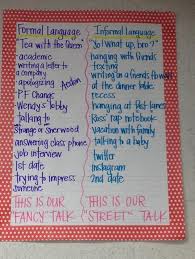 Formal Language
"Tea with the Queen"
academic
writing a letter to
a company
apologizing
PF Change
Wendy's lobby
talking to
Strange or Sherwood
answering class phone
job interview
1st date
trying to impress
someone
THIS IS OUR
FANCY TALK
Informal Language
"Yo! what up, bro?"
hanging with friends
texting
writing on a friends
at the dinner table
recess
hanging at fast-lanes
Russ' rap notebook
vacation with family
talking to dad
twitter
instagram
2nd date
THIS IS OUR
"STREET" TALK